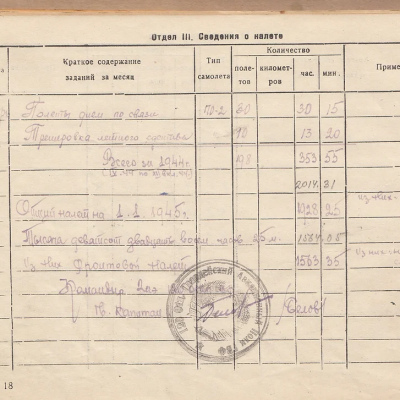 Отдел III. Сведения о налете
Краткое содержание заданий за месяц
Тип самолета
Количество
полетов
километров
час.
мин.
Приме
Полеты днем по связи ПО-2 60 30 15
Тренировка летного состава 90 13 20
Всего за 1944г. 198 353 55
2014 31
Общий налет на 1.1.1945г. 1928 25
Тысяча девятсот двадцать восем часов 25 м.
Из них фронтовой налет 1563 35
Командир
Гв. капитан /Белов/
18